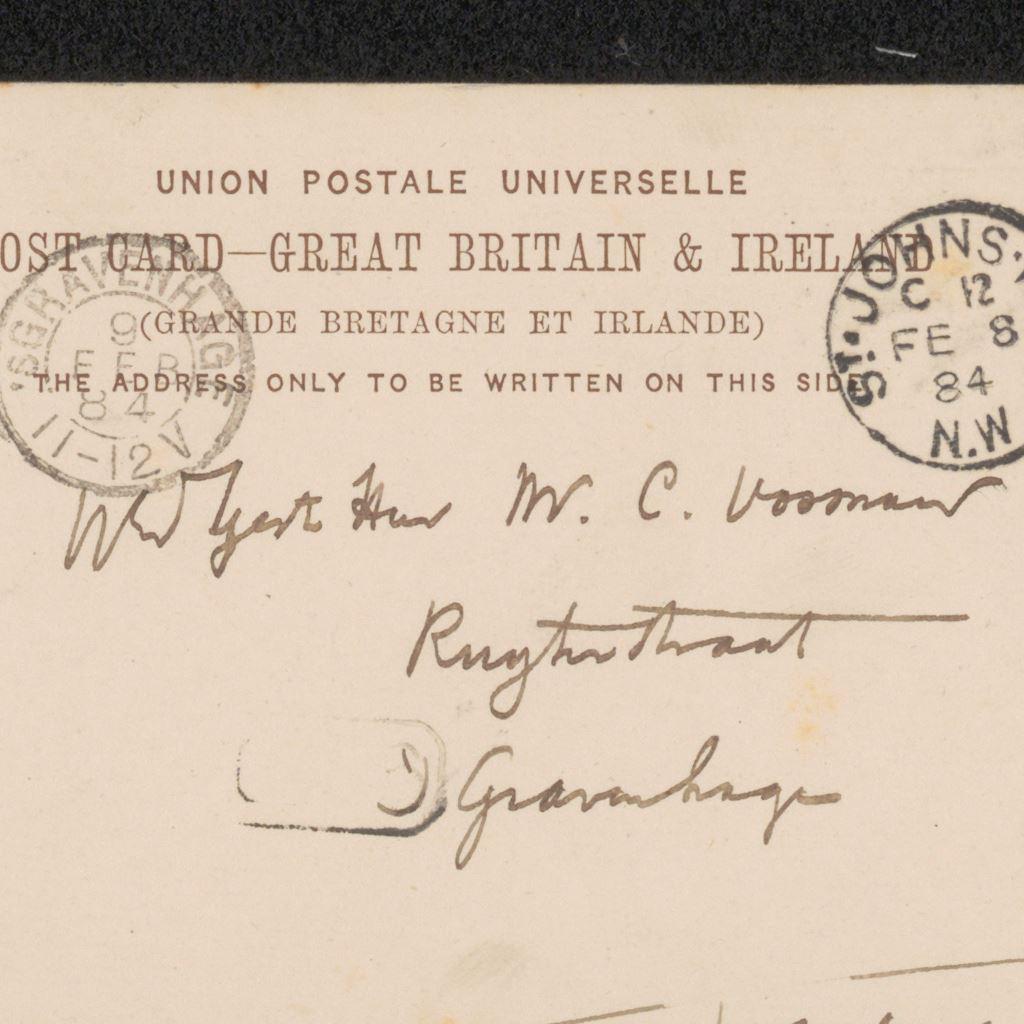 UNION POSTALE UNIVERSELLE
OST CARD—GREAT BRITAIN & IRELAND
(GRANDE BRETAGNE ET IRLANDE)
THE ADDRESS ONLY TO BE WRITTEN ON THIS SIDE
'SGRAVENHAGE
9
FEB
84
11-12V
ST. JOHNS.
C 12
FE 8
84
N.W
Wel Gest Heer Mr. C. Vosmaer
Ruyterstraat
Gravenhage